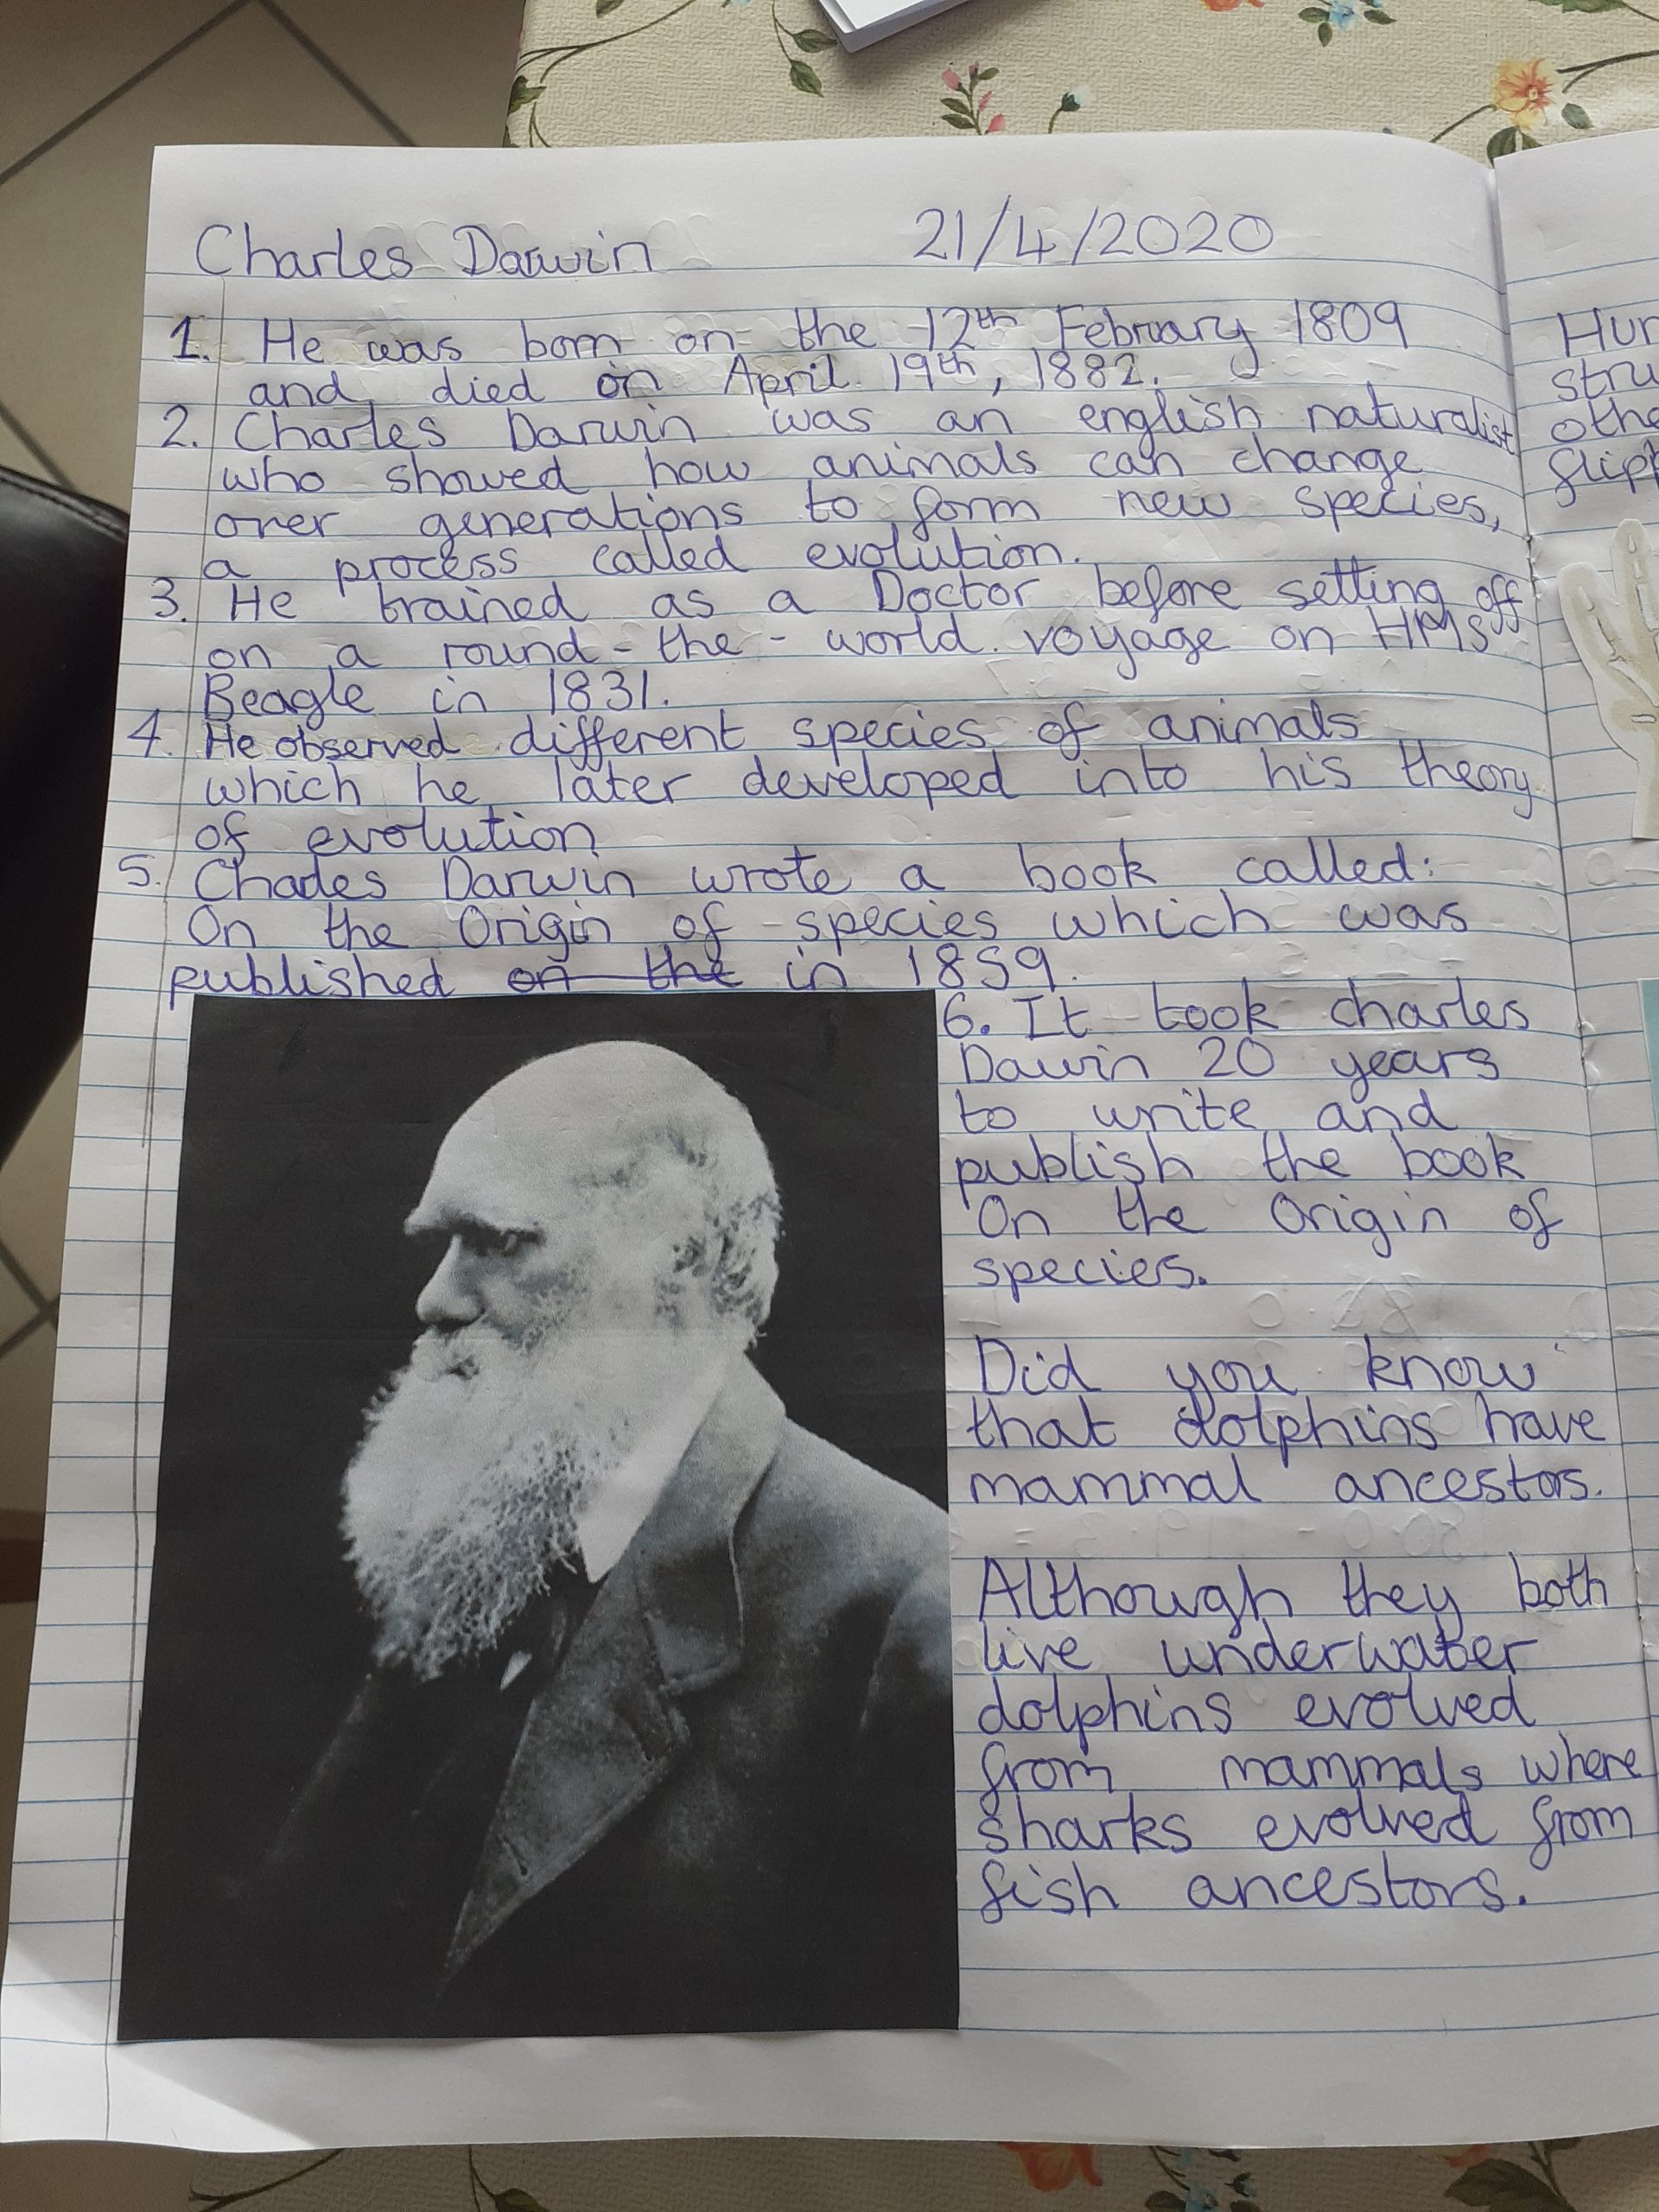 Charles Darwin 21/4/2020
1. He was born on the 12th February 1809
and died on April 19th, 1882.
2. Charles Darwin was an english naturalist
who showed how animals can change
over generations to form new species,
a process called evolution.
3. He trained as a Doctor before setting off
on a round-the-world voyage on HMS
Beagle in 1831.
4. He observed different species of animals
which he later developed into his theory
of evolution
5. Charles Darwin wrote a book called:
On the Origin of species which was
published on the in 1859.
6. It took charles
Dawin 20 years
to write and
publish the book
On the Origin of
species.
Did you know
that dolphins have
mammal ancestors.
Although they both
live underwater
dolphins evolved
from mammals where
sharks evolved from
fish ancestors.